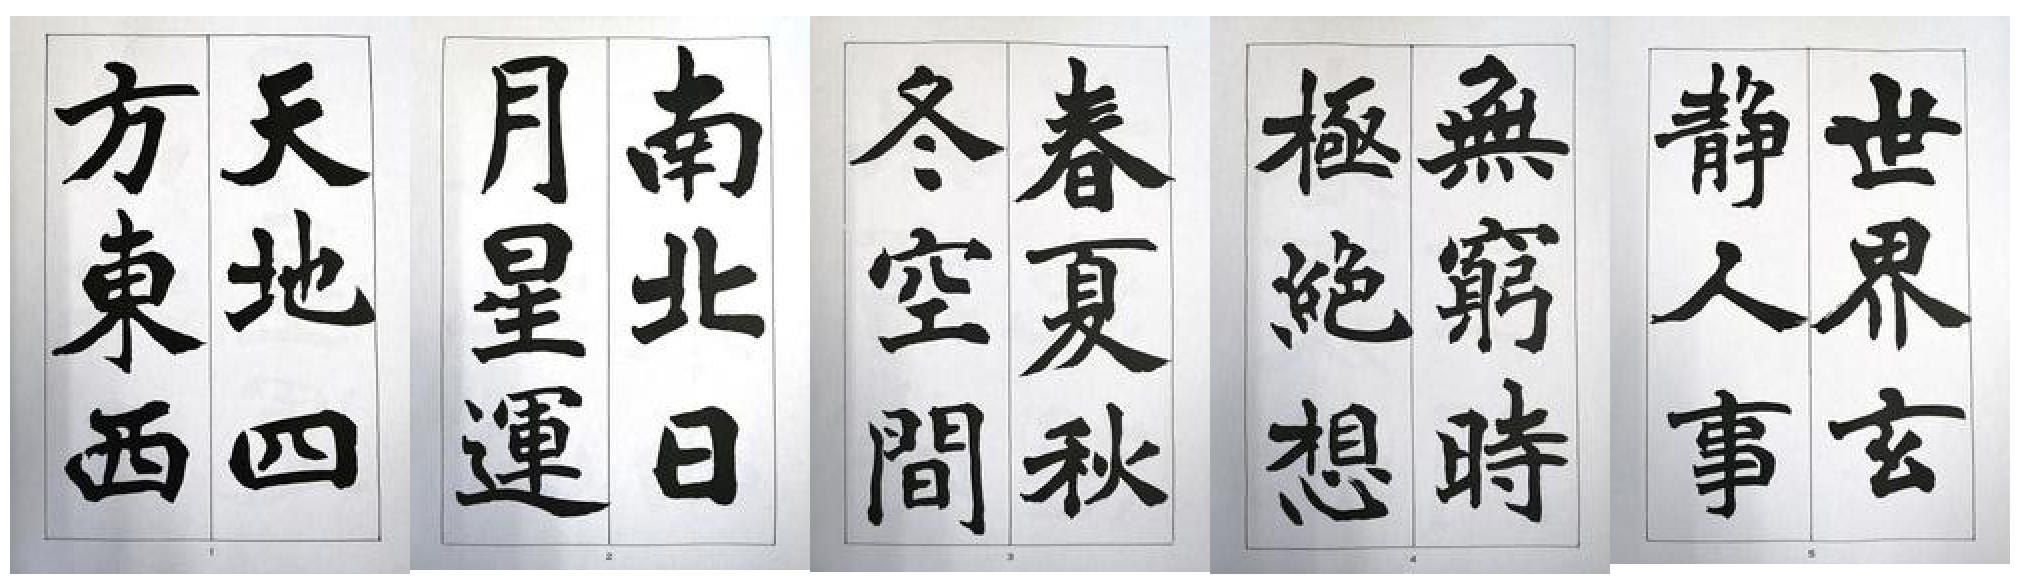 天地四
方東西
1
南北日
月星運
2
春夏秋
冬空間
3
無窮時
極絶想
4
世界玄
静人事
5